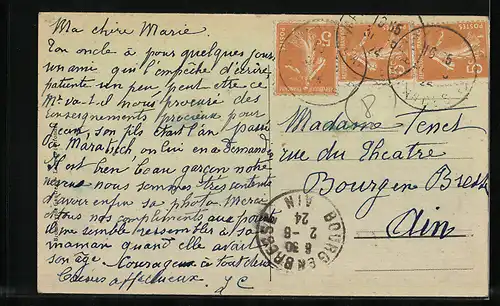 Ma chère Marie.
Ton oncle a pour quelques jours,
un ami qui l'empêche d'écrire
patiente un peu, peut être ce
Mr va-t-il nous procurer des
renseignements précieux pour
Jean, son fils était l'an passé
la Marabech, on lui en demande
Il est bien beau garçon notre
neveu nous sommes très contents
d'avoir enfin sa photo. Merci
tous nos compliments aux
il me semble ressembler à sa
maman quand elle avait
son âge. Courage à tout deux
Baisers affectueux. JC
POSTES
5
5
5
8
Madame Tenet
rue du Theatre
Bourg en Bresse
Ain
BOURG EN BRESSE
AIN
6 30
2-6
24